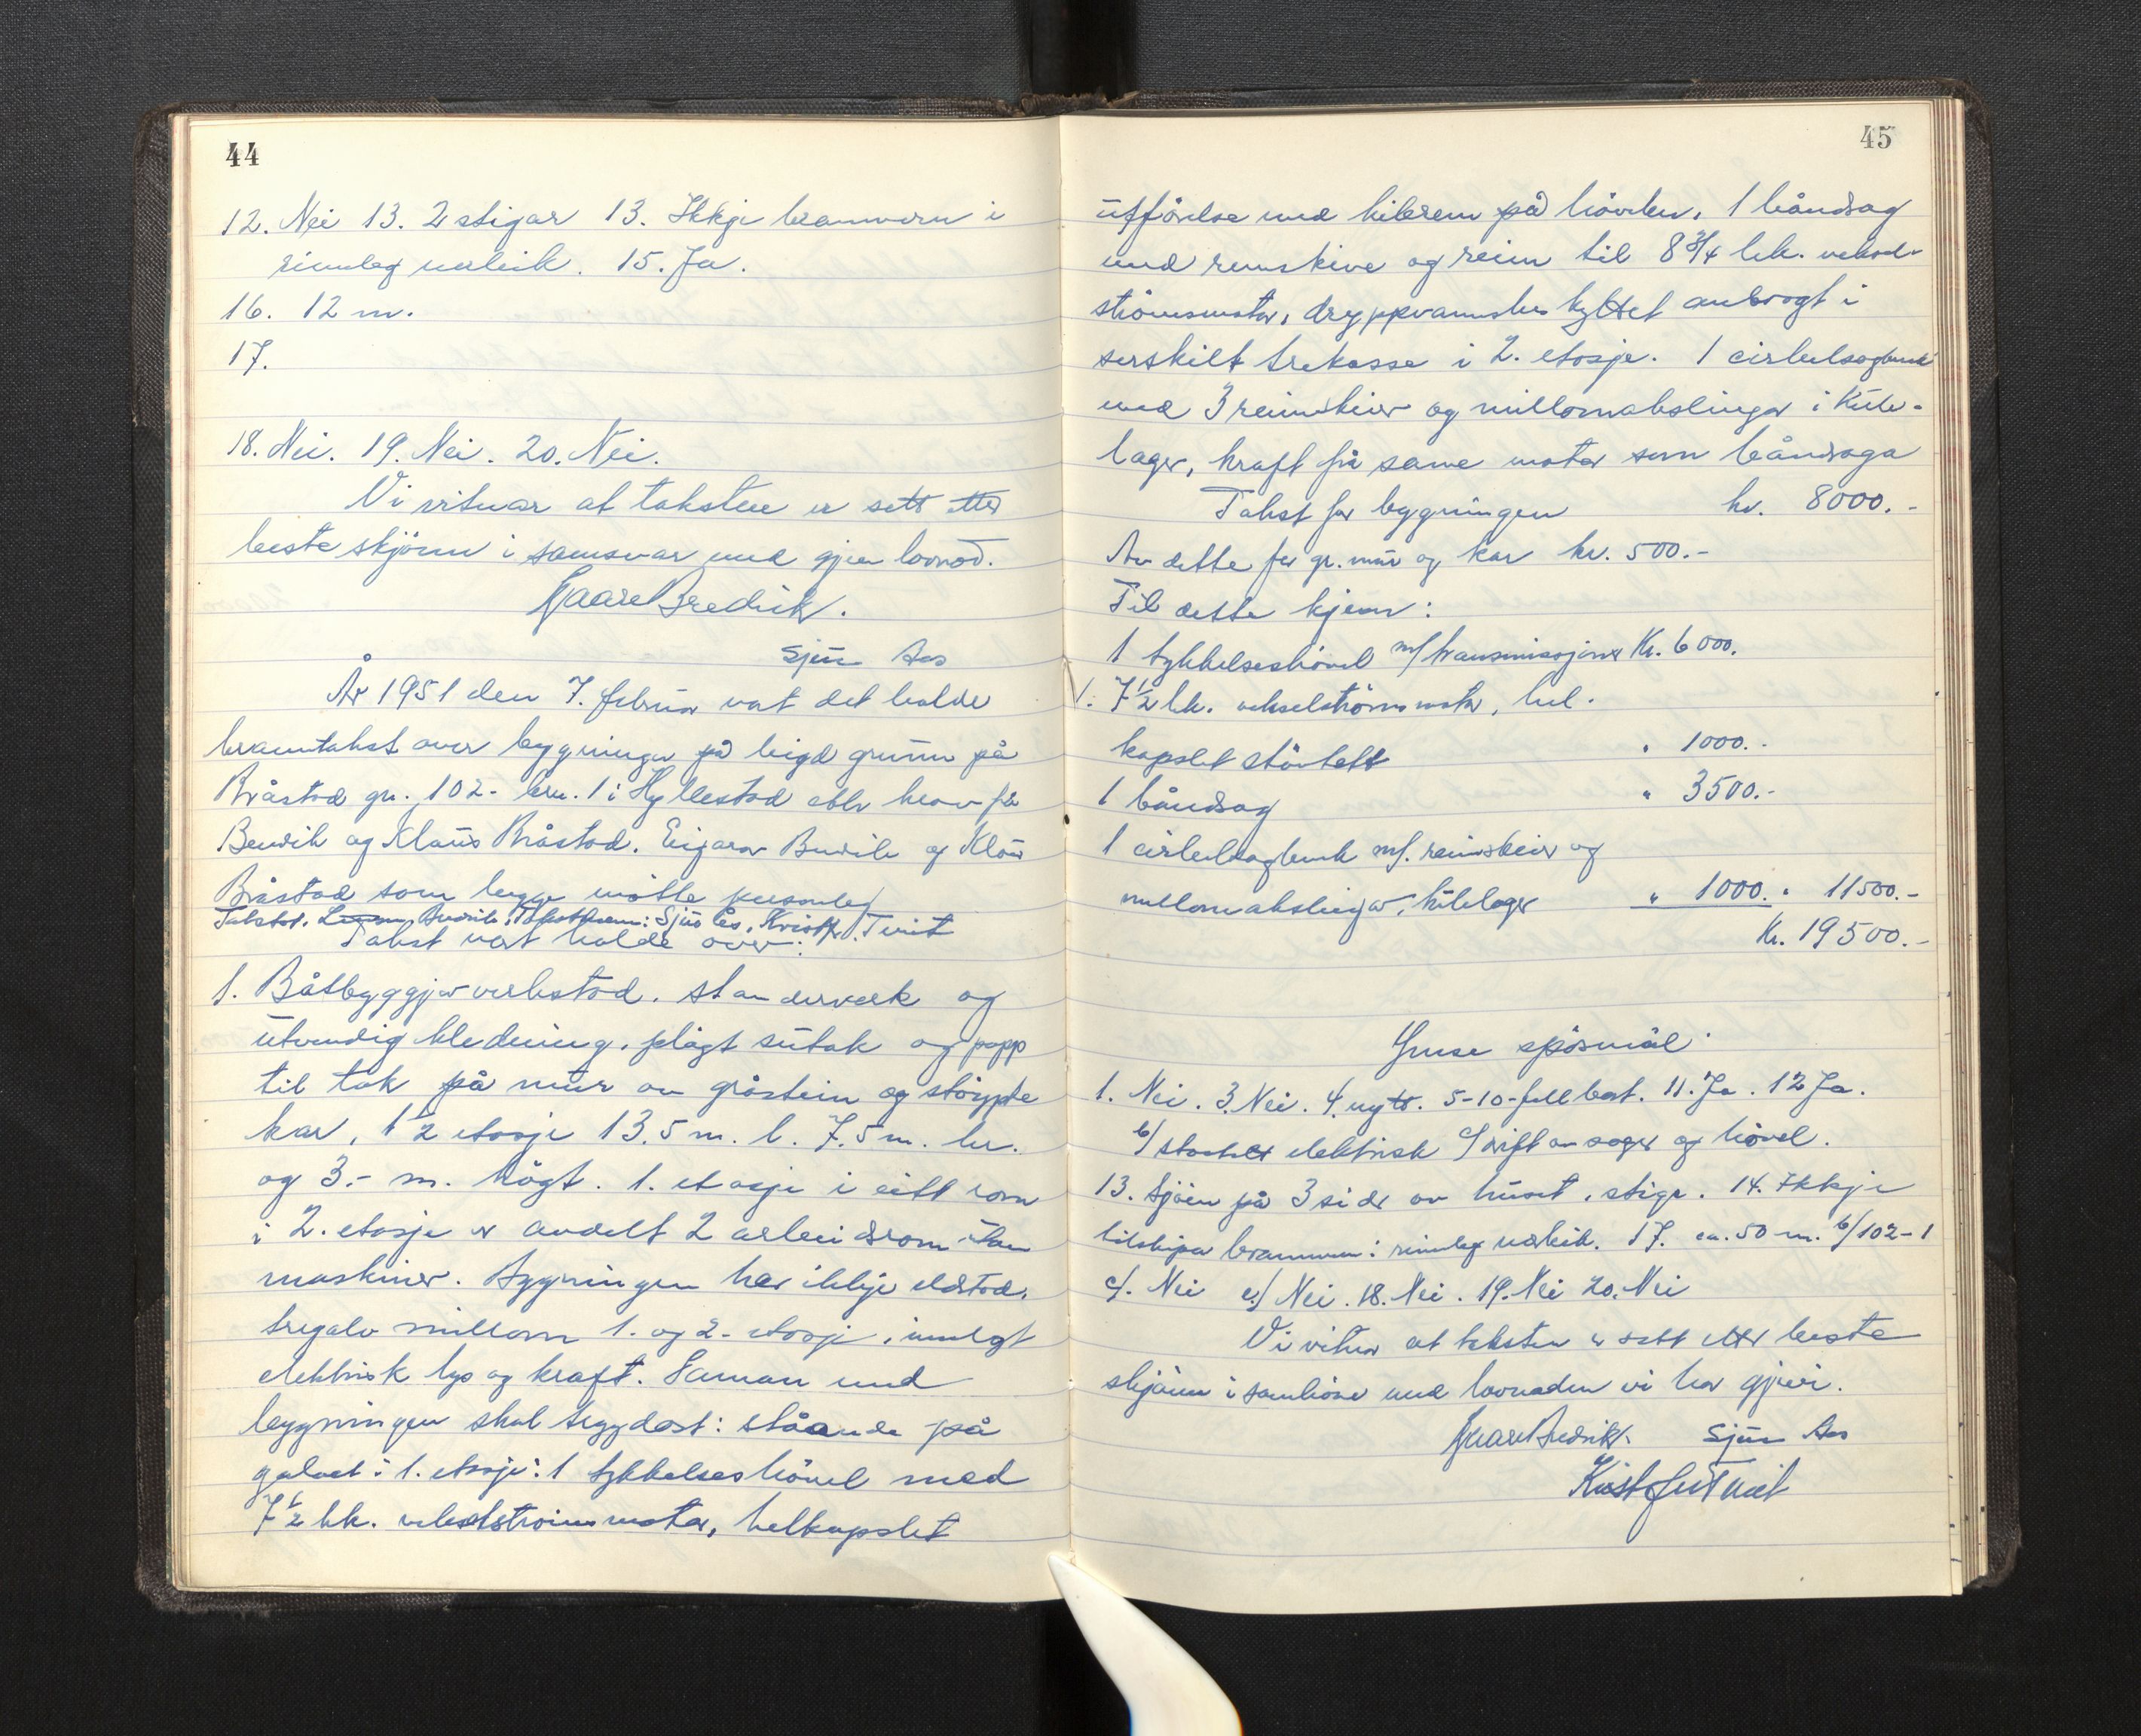 44
12. Nei 13. 2 stigar 13. Ikkje brannvern i
rimeleg nerleik. 15. Ja.
16. 12 m.
17.
18. Nei. 19. Nei. 20. Nei.
Vi vitnar at taksten er sett etter
beste skjönn i samsvar med gjeve lovnad.
Kaare Bredvik.
Sjur Aes
År 1951 den 7. februar vart det halde
branntakst over bygningar på leigd grunn på
Bråstad gn. 102 - brn. 1 i Hyllestad etter krav frå
Bendik og Klaus Bråstad. Eigarar Bendik og Klaus
Bråstad som begge møtte personleg
Takstm: Sjur Ås, Kristofer Tveit
Takst vart halde over:
1. Båtbyggjarverkstad. standerverk og
utvendig kledning, plögt sutak og papp
til tak på mur av gråstein og stöypte
kar, 1 1/2 etasje 13.5 m. l. 7.5 m. br.
og 3.- m. högt. 1. etasje i eitt rom
i 2. etasje er avdelt 2 arbeidsrom utan
maskiner. Bygningen har ikkje eldstad.
tregolv millom 1. og 2. etasje, innlagt
elektrisk lys og kraft. Saman med
bygningen skal trygdast: ståande på
golvet i 1. etasje: 1 tykkelseshövel med
7 1/2 hk. vekselströmsmotor, helkapslet
45
utförelse med kilerem på hövelen, 1 båndsag
med remskive og reim til 8 3/4 hk. veksel-
strömsmotor, dryppvannsbeskyttet anbragt i
serskilt trekasse i 2. etasje. 1 cirkelsagbenk
med 3 reimskiver og millomakslingar i kule-
lager, kraft frå same motor som båndsaga
Takst for bygningen kr. 8000.-
Av dette for gr. mur og kar kr. 500.-
Til dette kjem:
1 tykkelseshövel m/transmissjoner Kr. 6000.
1. 7 1/2 hk. vekselströmsmotor, hel-
kapslet stövtett " 1000.-
1 båndsag " 3500.-
1 cirkelsagbenk m/. reimskiver og
millomakslingar, kulelager " 1000. " 11500.-
Kr. 19500.-
Ymse spösmål:
1. Nei. 3. Nei. 4. nytt. 5-10-fell bort. 11. Ja. 12 Ja.
b/ elektrisk drift av sager og hövel.
13. Sjöen på 3 sider av huset, stige. 14. Ikkje
tilskipa brannvern i rimeleg nerleik. 17. ca. 50 m. b/ 102-1
c/. Nei e/ Nei. 18. Nei. 19. Nei 20. Nei
Vi vitnar at taksten er sett etter beste
skjönn i samhöve med lovnaden vi har gjeve.
Kaare Bredvik. Sjur Aes
Kristofer Tveit